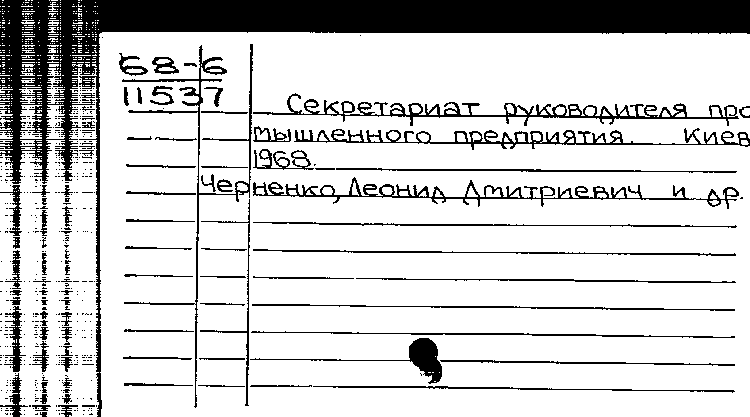 68-6
11537
Секретариат руководителя про
мышленного предприятия. Киев
1968.
Черненко, Леонид Дмитриевич и др.